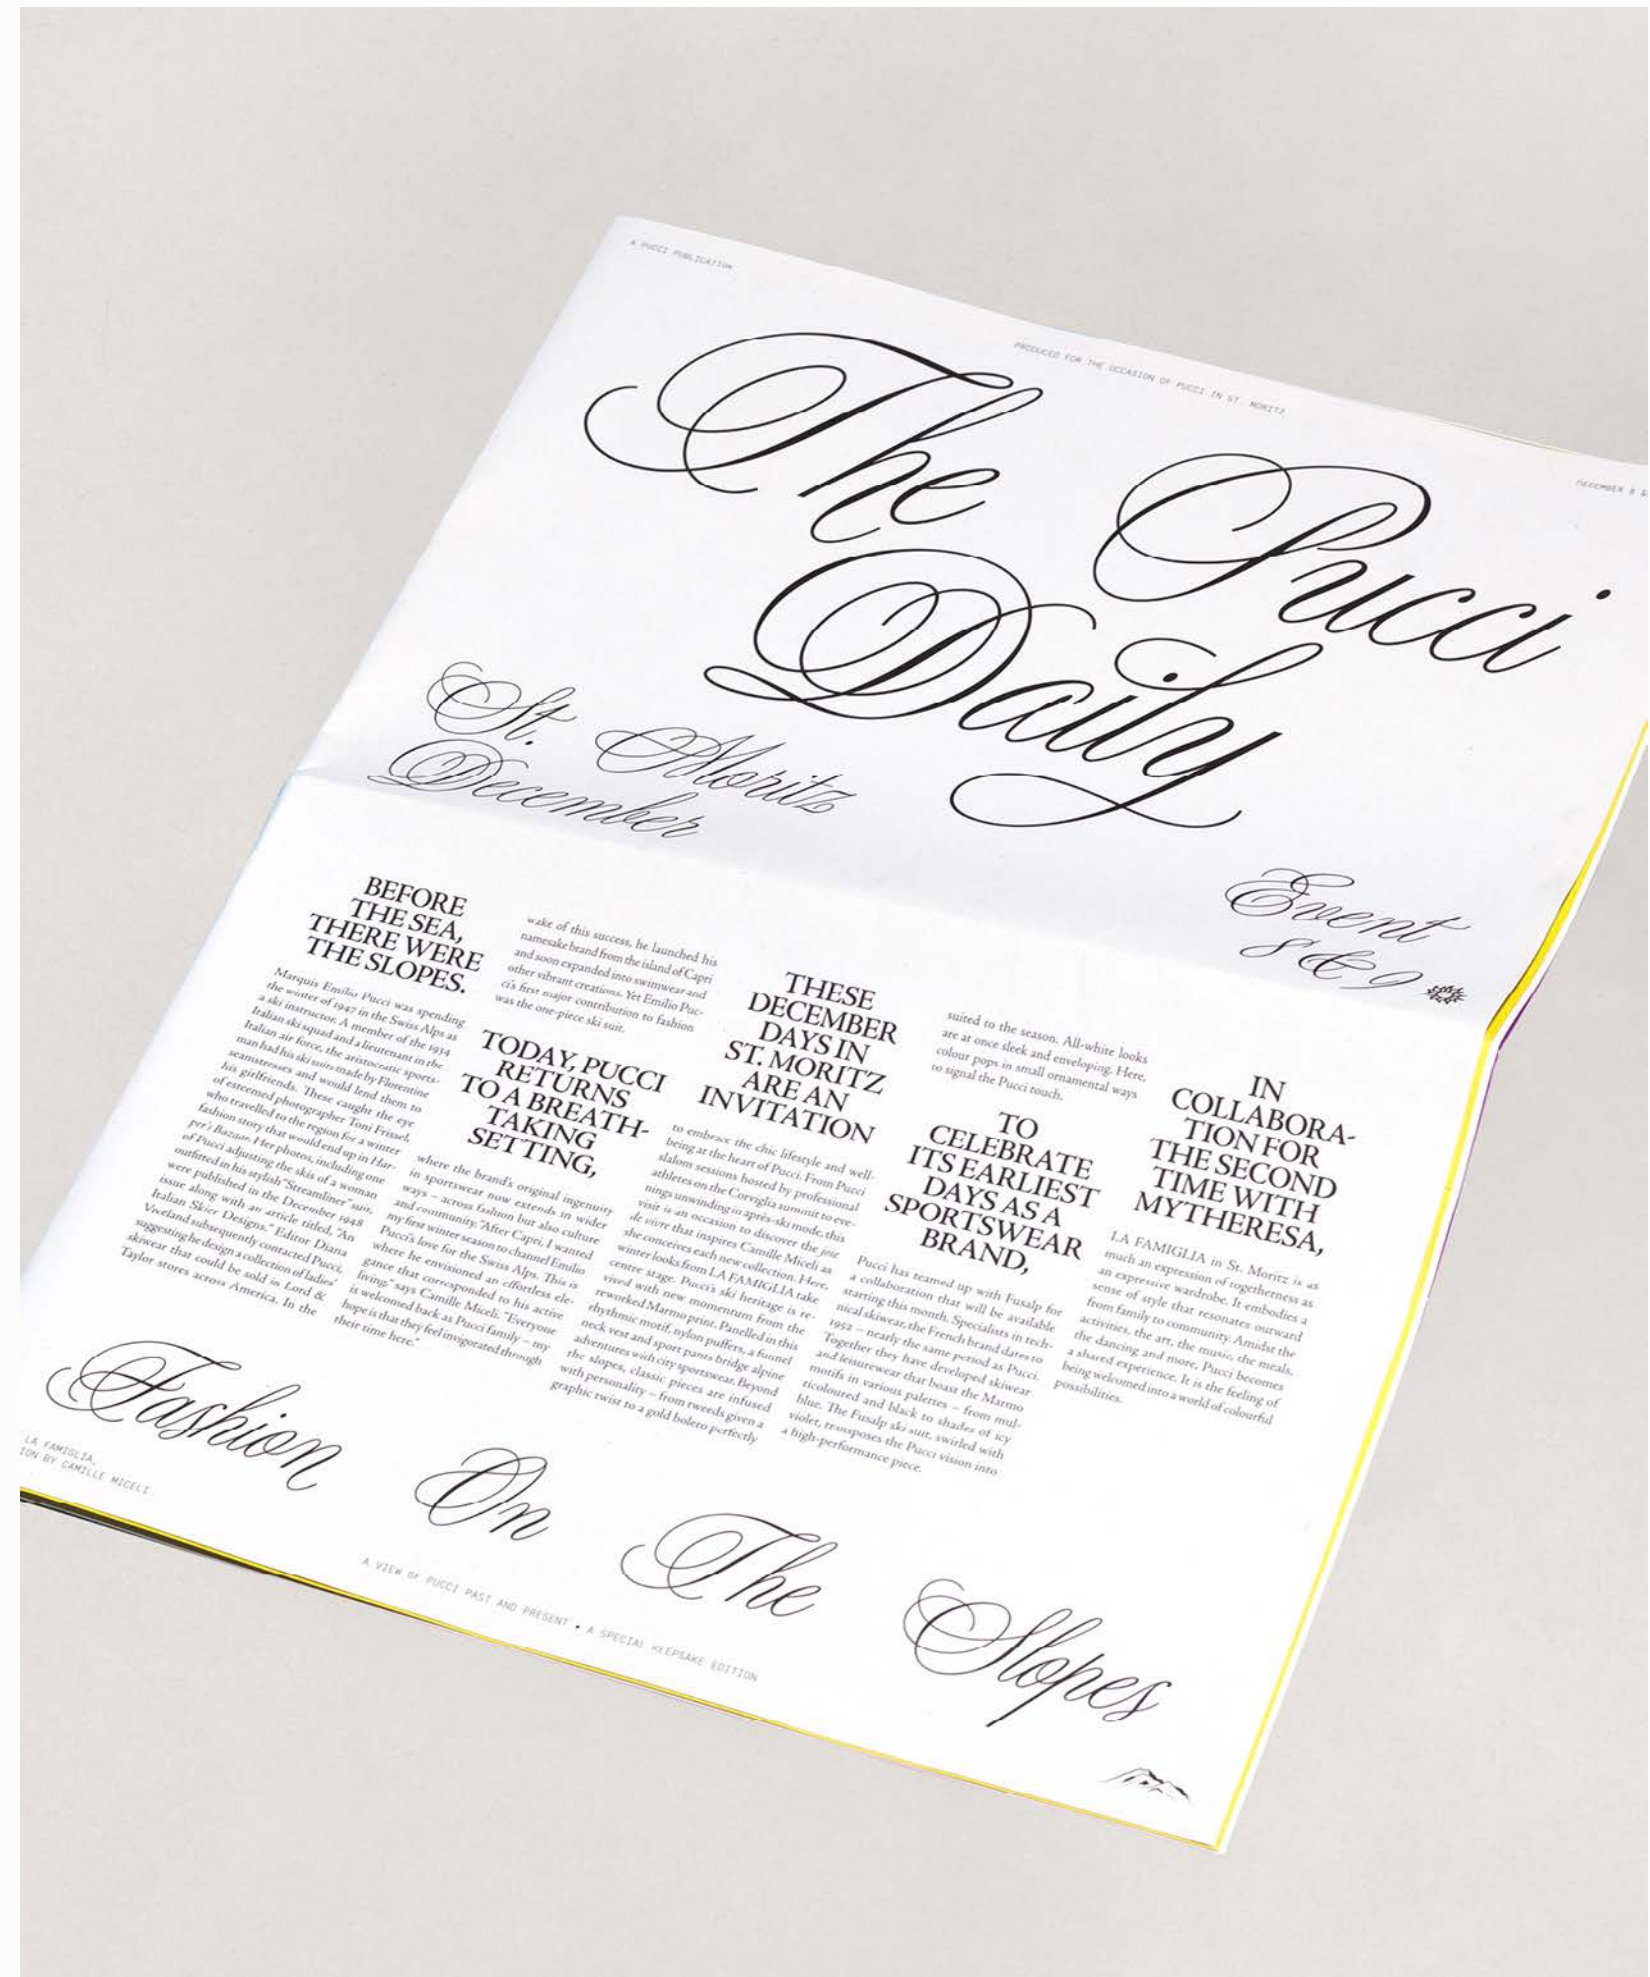 A PUCCI PUBLICATION
PRODUCED FOR THE OCCASION OF PUCCI IN ST. MORITZ
DECEMBER 8 &
The Pucci
Daily
St. Moritz
December
Event
8 & 9
BEFORE
THE SEA,
THERE WERE
THE SLOPES.
Marquis Emilio Pucci was spending
the winter of 1947 in the Swiss Alps as
a ski instructor. A member of the 1934
Italian ski squad and a lieutenant in the
Italian air force, the aristocratic sports-
man had his ski suits made by Florentine
seamstresses and would lend them to
his girlfriends. These caught the eye
of esteemed photographer Toni Frissel,
who travelled to the region for a winter
fashion story that would end up in Har-
per's Bazaar. Her photos, including one
of Pucci adjusting the skis of a woman
outfitted in his stylish "Streamliner" suit,
were published in the December 1948
issue along with an article titled, "An
Italian Skier Designs." Editor Diana
Vreeland subsequently contacted Pucci,
suggesting he design a collection of ladies'
skiwear that could be sold in Lord &
Taylor stores across America. In the
wake of this success, he launched his
namesake brand from the island of Capri
and soon expanded into swimwear and
other vibrant creations. Yet Emilio Puc-
ci's first major contribution to fashion
was the one-piece ski suit.
TODAY, PUCCI
RETURNS
TO A BREATH-
TAKING
SETTING,
where the brand's original ingenuity
in sportswear now extends in wider
ways – across fashion but also culture
and community. "After Capri, I wanted
my first winter season to channel Emilio
Pucci's love for the Swiss Alps. This is
where he envisioned an effortless ele-
gance that corresponded to his active
living," says Camille Miceli. "Everyone
is welcomed back as Pucci family – my
hope is that they feel invigorated through
their time here."
THESE
DECEMBER
DAYS IN
ST. MORITZ
ARE AN
INVITATION
to embrace the chic lifestyle and well-
being at the heart of Pucci. From Pucci
slalom sessions hosted by professional
athletes on the Corviglia summit to eve-
nings unwinding in après-ski mode, this
visit is an occasion to discover the joie
de vivre that inspires Camille Miceli as
she conceives each new collection. Here,
winter looks from LA FAMIGLIA take
centre stage. Pucci's ski heritage is re-
vived with new momentum from the
reworked Marmo print. Panelled in this
rhythmic motif, nylon puffers, a funnel
neck vest and sport pants bridge alpine
adventures with city sportswear. Beyond
the slopes, classic pieces are infused
with personality – from tweeds given a
graphic twist to a gold bolero perfectly
suited to the season. All-white looks
are at once sleek and enveloping. Here,
colour pops in small ornamental ways
to signal the Pucci touch.
TO
CELEBRATE
ITS EARLIEST
DAYS AS A
SPORTSWEAR
BRAND,
Pucci has teamed up with Fusalp for
a collaboration that will be available
starting this month. Specialists in tech-
nical skiwear, the French brand dates to
1952 – nearly the same period as Pucci.
Together they have developed skiwear
and leisurewear that boast the Marmo
motifs in various palettes – from mul-
ticoloured and black to shades of icy
blue. The Fusalp ski suit, swirled with
violet, transposes the Pucci vision into
a high-performance piece.
IN
COLLABORA-
TION FOR
THE SECOND
TIME WITH
MYTHERESA,
LA FAMIGLIA in St. Moritz is as
much an expression of togetherness as
an expressive wardrobe. It embodies a
sense of style that resonates outward
from family to community. Amidst the
activities, the art, the music, the meals,
the dancing and more, Pucci becomes
a shared experience. It is the feeling of
being welcomed into a world of colourful
possibilities.
Fashion On The Slopes
LA FAMIGLIA,
ION BY CAMILLE MICELI
A VIEW OF PUCCI PAST AND PRESENT • A SPECIAL KEEPSAKE EDITION